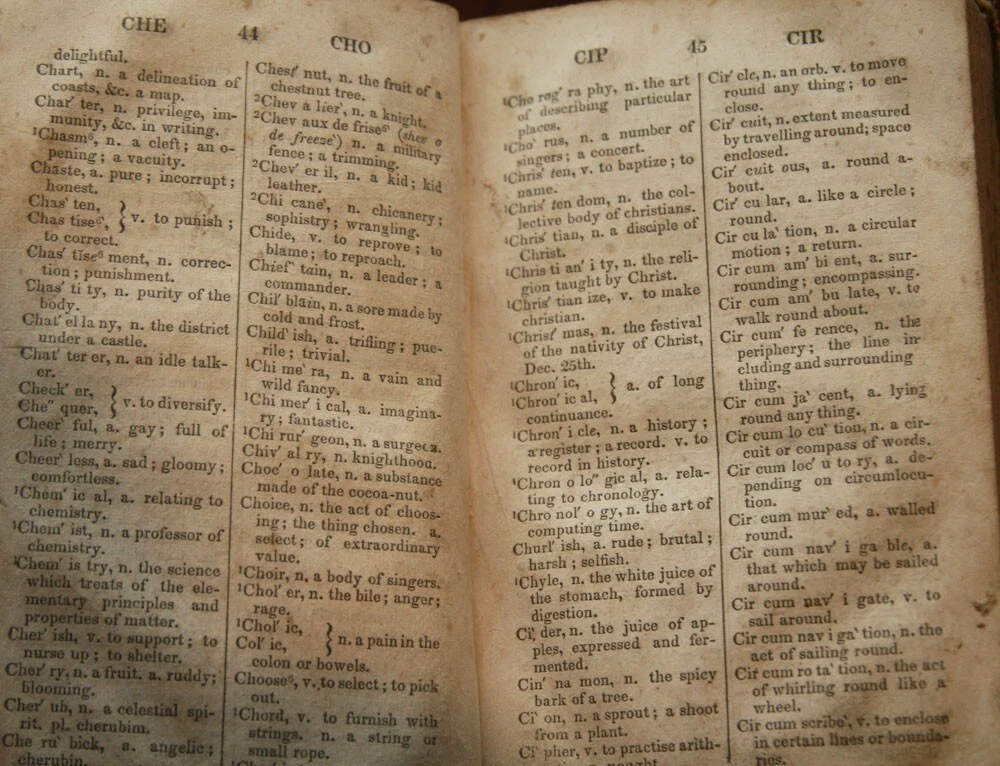 CHE 44 CHO
delightful.
Chart, n. a delineation of
coasts, &c. a map.
Char′ ter, n. privilege, im-
munity, &c. in writing.
¹Chasm⁶, n. a cleft; an o-
pening; a vacuity.
Chaste, a. pure; incorrupt;
honest.
Chas′ ten,
Chas tise⁶′, } v. to punish;
to correct.
Chas′ tīse⁶ ment, n. correc-
tion; punishment.
Chas′ ti ty, n. purity of the
body.
Chat′ el la ny, n. the district
under a castle.
Chat′ ter er, n. an idle talk-
er.
Check′ er,
Che″ quer, } v. to diversify.
Cheer′ ful, a. gay; full of
life; merry.
Cheer′ less, a. sad; gloomy;
comfortless.
¹Chem′ ic al, a. relating to
chemistry.
¹Chem′ ist, n. a professor of
chemistry.
¹Chem′ is try, n. the science
which treats of the ele-
mentary principles and
properties of matter.
Cher′ ish, v. to support; to
nurse up; to shelter.
Cher′ ry, n. a fruit. a. ruddy;
blooming.
Cher′ ub, n. a celestial spi-
rit. pl. cherubim.
Che ru′ bick, a. angelic;
cherubin.
Chest′ nut, n. the fruit of a
chestnut tree.
²Chev a liēr′, n. a knight.
²Chev aux de frise⁶′ (shev o
de freeze′) n. a military
fence; a trimming.
²Chev′ er il, n. a kid; kid
leather.
²Chi cane′, n. chicanery;
sophistry; wrangling.
Chide, v. to reprove; to
blame; to reproach.
Chief′ tain, n. a leader; a
commander.
Chil′ blain, n. a sore made by
cold and frost.
Child′ ish, a. trifling; pue-
rile; trivial.
¹Chi me′ ra, n. a vain and
wild fancy.
¹Chi mer′ i cal, a. imagina-
ry; fantastic.
¹Chi rur′ geon, n. a surgeon.
Chiv′ al ry, n. knighthood.
Choc′ o late, n. a substance
made of the cocoa-nut.
Choice, n. the act of choos-
ing; the thing chosen. a.
select; of extraordinary
value.
¹Choir, n. a body of singers.
¹Chol′ er, n. the bile; anger;
rage.
¹Chol′ ic,
Col′ ic, } n. a pain in the
colon or bowels.
Choose⁶, v. to select; to pick
out.
¹Chord, v. to furnish with
strings. n. a string or
small rope.
CIP 45 CIR
¹Cho rog′ ra phy, n. the art
of describing particular
places.
¹Cho′ rus, n. a number of
singers; a concert.
¹Chris′ ten, v. to baptize; to
name.
¹Chris′ ten dom, n. the col-
lective body of christians.
¹Chris′ tian, n. a disciple of
Christ.
¹Chris ti an′ i ty, n. the reli-
gion taught by Christ.
¹Chris′ tian ize, v. to make
christian.
¹Christ′ mas, n. the festival
of the nativity of Christ,
Dec. 25th.
¹Chron′ ic,
¹Chron′ ic al, } a. of long
continuance.
¹Chron′ i cle, n. a history;
a register; a record. v. to
record in history.
¹Chron o lo″ gic al, a. rela-
ting to chronology.
¹Chro nol′ o gy, n. the art of
computing time.
Churl′ ish, a. rude; brutal;
harsh; selfish.
¹Chyle, n. the white juice of
the stomach, formed by
digestion.
Ci′ der, n. the juice of ap-
ples, expressed and fer-
mented.
Cin′ na mon, n. the spicy
bark of a tree.
Ci′ on, n. a sprout; a shoot
from a plant.
Ci′ pher, v. to practise arith-
nought.
Cir′ cle, n. an orb. v. to move
round any thing; to en-
close.
Cir′ cuit, n. extent measured
by travelling around; space
enclosed.
Cir′ cuit ous, a. round a-
bout.
Cir′ cu lar, a. like a circle;
round.
Cir cu la′ tion, n. a circular
motion; a return.
Cir cum am′ bi ent, a. sur-
rounding; encompassing.
Cir cum am′ bu late, v. to
walk round about.
Cir cum′ fe rence, n. the
periphery; the line in-
cluding and surrounding
thing.
Cir cum ja′ cent, a. lying
round any thing.
Cir cum lo cu′ tion, n. a cir-
cuit or compass of words.
Cir cum loc′ u to ry, a. de-
pending on circumlocu-
tion.
Cir cum mur′ ed, a. walled
round.
Cir cum nav′ i ga ble, a.
that which may be sailed
around.
Cir cum nav′ i gate, v. to
sail around.
Cir cum nav i ga′ tion, n. the
act of sailing round.
Cir cum ro ta′ tion, n. the act
of whirling round like a
wheel.
Cir cum scribe′, v. to enclose
in certain lines or bounda-
ries.